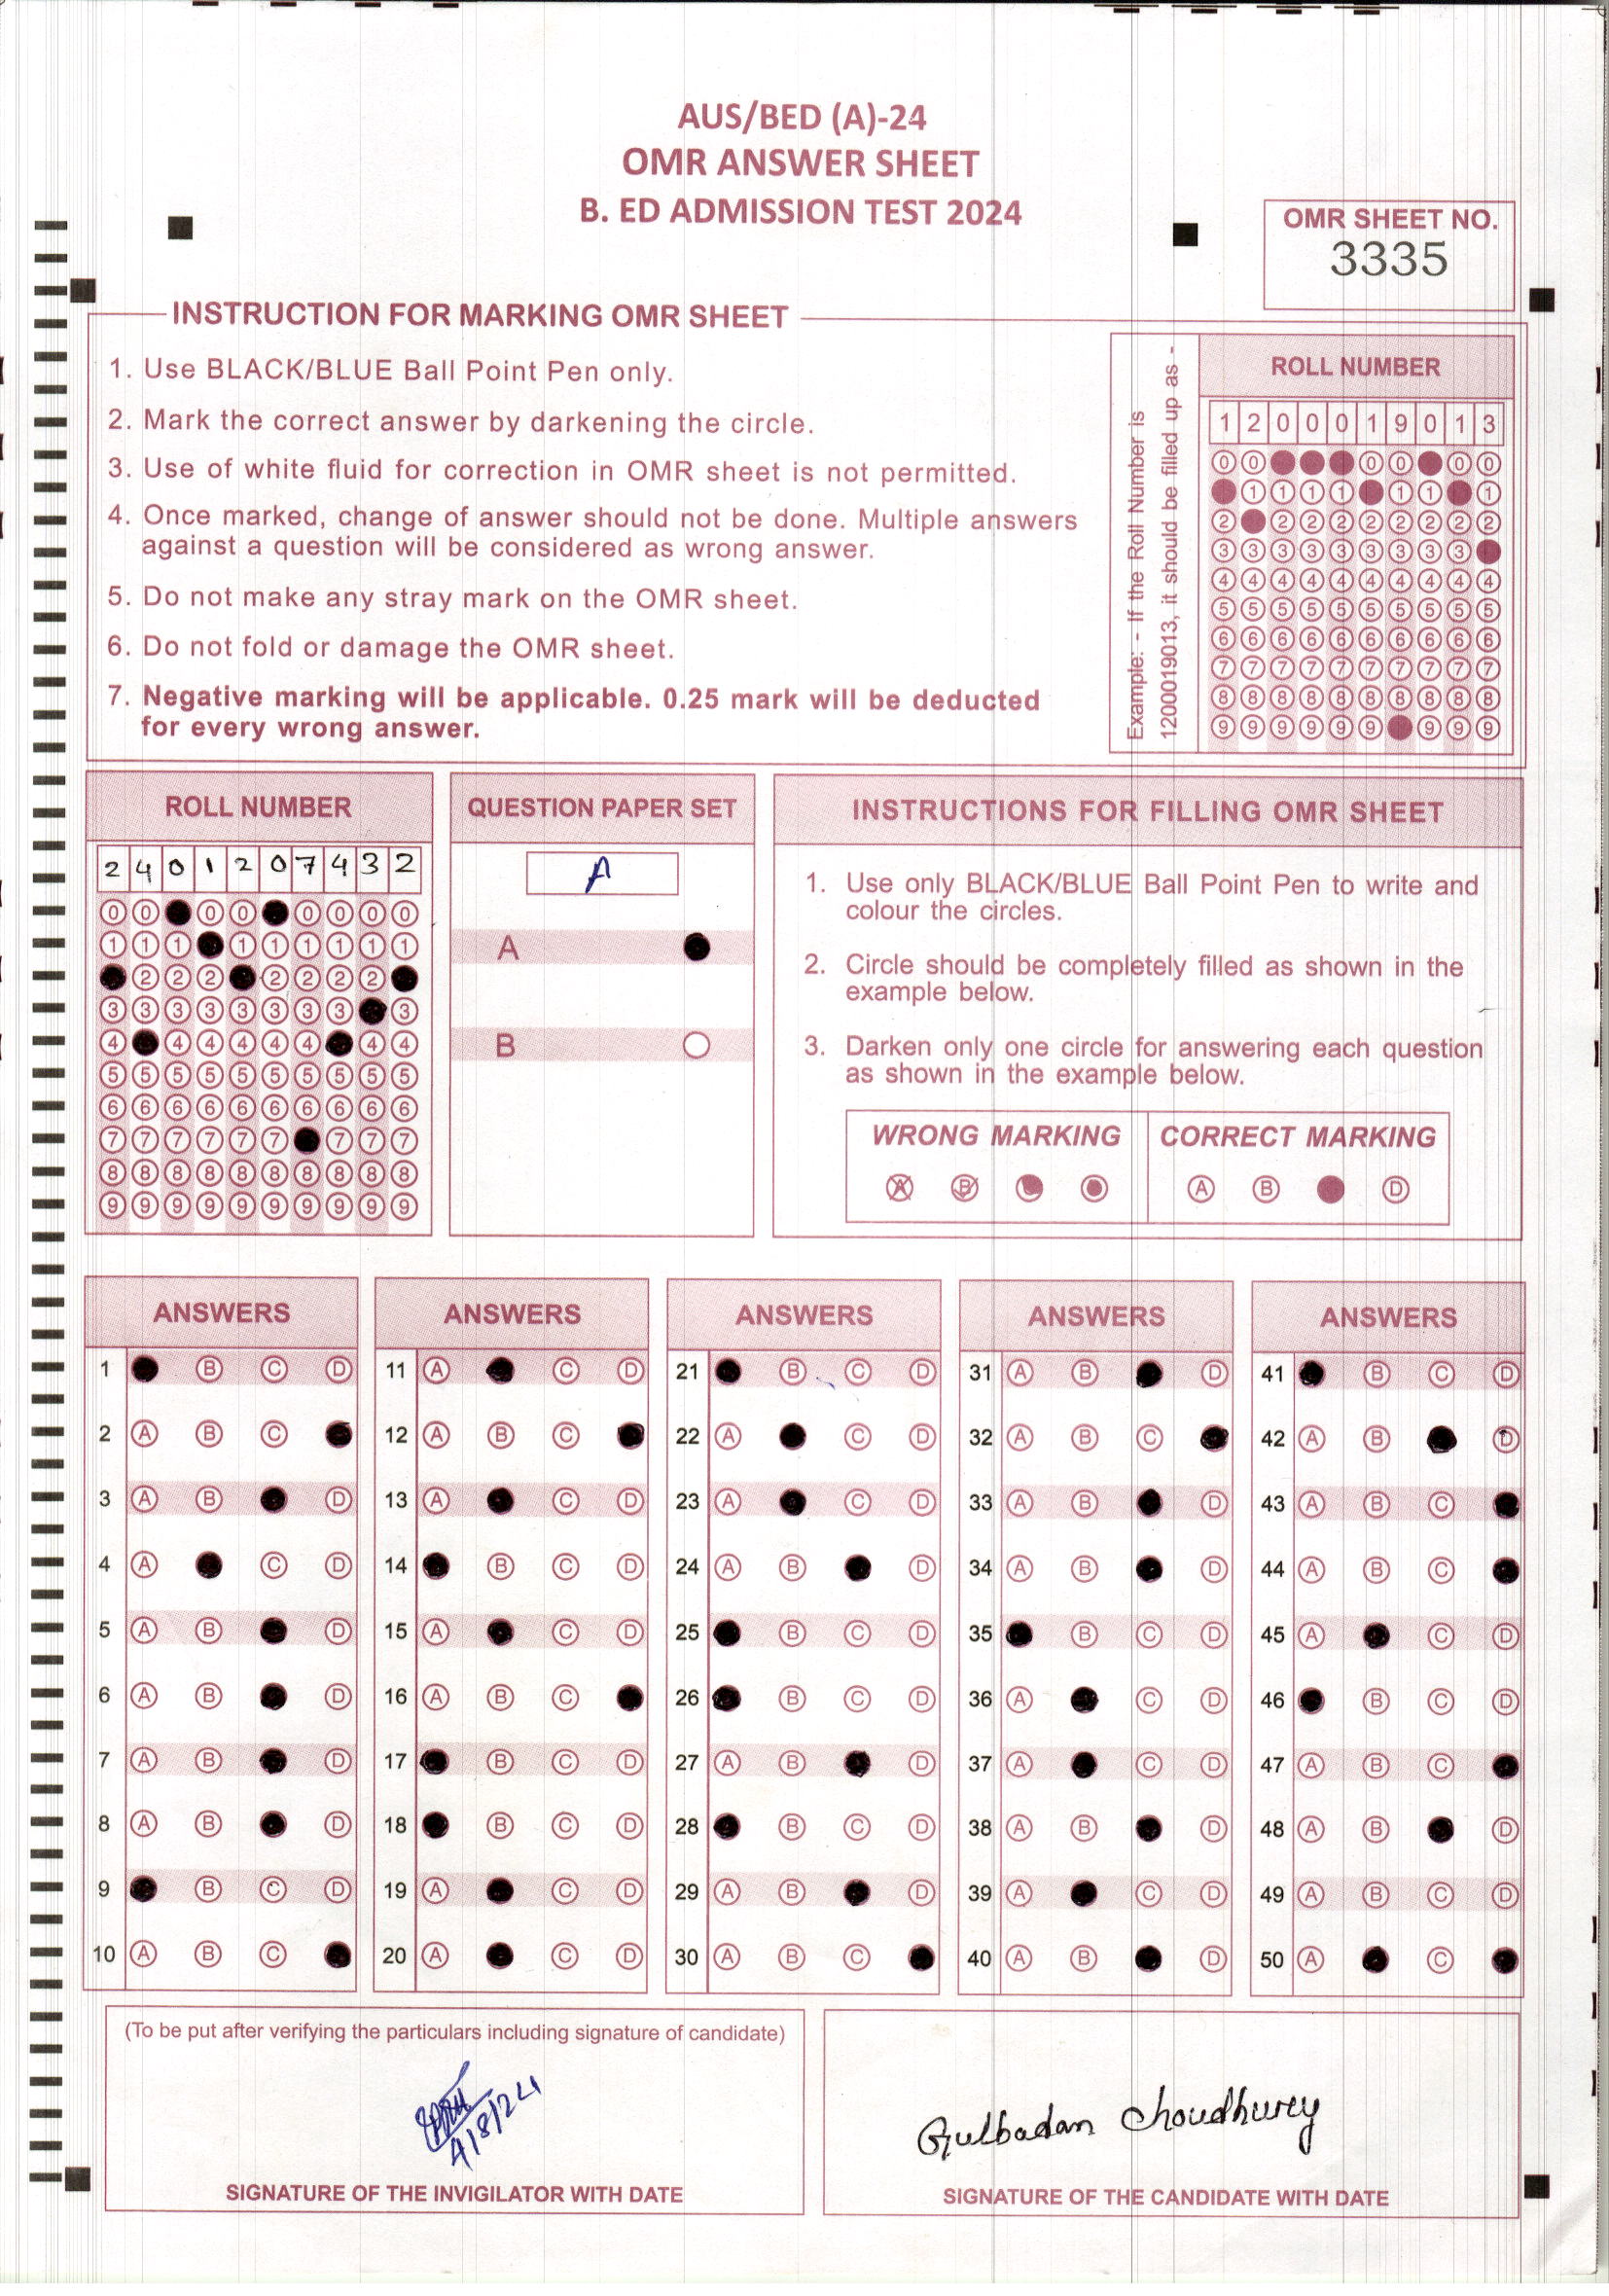 AUS/BED (A)-24
OMR ANSWER SHEET
B. ED ADMISSION TEST 2024
OMR SHEET NO.
3335
INSTRUCTION FOR MARKING OMR SHEET
1. Use BLACK/BLUE Ball Point Pen only.
2. Mark the correct answer by darkening the circle.
3. Use of white fluid for correction in OMR sheet is not permitted.
4. Once marked, change of answer should not be done. Multiple answers
against a question will be considered as wrong answer.
5. Do not make any stray mark on the OMR sheet.
6. Do not fold or damage the OMR sheet.
7. Negative marking will be applicable. 0.25 mark will be deducted
for every wrong answer.
Example: - If the Roll Number is
1200019013, it should be filled up as -
ROLL NUMBER
1 2 0 0 0 1 9 0 1 3
0 0 0 0 0 0
1 1 1 1 1 1 1
2 2 2 2 2 2 2 2 2
3 3 3 3 3 3 3 3 3
4 4 4 4 4 4 4 4 4 4
5 5 5 5 5 5 5 5 5 5
6 6 6 6 6 6 6 6 6 6
7 7 7 7 7 7 7 7 7 7
8 8 8 8 8 8 8 8 8 8
9 9 9 9 9 9 9 9 9
ROLL NUMBER
2 4 0 1 2 0 7 4 3 2
0 0 0 0 0 0 0 0
1 1 1 1 1 1 1 1 1
2 2 2 2 2 2 2
3 3 3 3 3 3 3 3 3
4 4 4 4 4 4 4 4
5 5 5 5 5 5 5 5 5 5
6 6 6 6 6 6 6 6 6 6
7 7 7 7 7 7 7 7 7
8 8 8 8 8 8 8 8 8 8
9 9 9 9 9 9 9 9 9 9
QUESTION PAPER SET
A
A
B
INSTRUCTIONS FOR FILLING OMR SHEET
1. Use only BLACK/BLUE Ball Point Pen to write and
colour the circles.
2. Circle should be completely filled as shown in the
example below.
3. Darken only one circle for answering each question
as shown in the example below.
WRONG MARKING
A B
CORRECT MARKING
A B D
ANSWERS
1 B C D
2 A B C
3 A B D
4 A C D
5 A B D
6 A B D
7 A B D
8 A B D
9 B C D
10 A B C
ANSWERS
11 A C D
12 A B C
13 A C D
14 B C D
15 A C D
16 A B C
17 B C D
18 B C D
19 A C D
20 A C D
ANSWERS
21 B C D
22 A C D
23 A C D
24 A B D
25 B C D
26 B C D
27 A B D
28 B C D
29 A B D
30 A B C
ANSWERS
31 A B D
32 A B C
33 A B D
34 A B D
35 B C D
36 A C D
37 A C D
38 A B D
39 A C D
40 A B D
ANSWERS
41 B C D
42 A B D
43 A B C
44 A B C
45 A C D
46 B C D
47 A B C
48 A B D
49 A B C D
50 A C
(To be put after verifying the particulars including signature of candidate)
4/8/24
SIGNATURE OF THE INVIGILATOR WITH DATE
Gulbadan Choudhury
SIGNATURE OF THE CANDIDATE WITH DATE